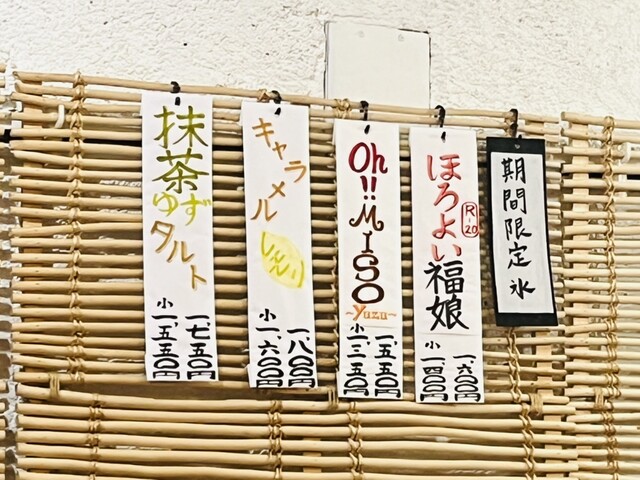 期間限定 氷
ほろよい
R-20
福娘
一、六〇〇円
小 一、四〇〇円
Oh!!
MISO
~Yuzu~
一、五五〇円
小 一、三五〇円
キャラメル
レモン
一、八〇〇円
小 一、六〇〇円
抹茶
ゆず
タルト
一、七五〇円
小 一、五五〇円